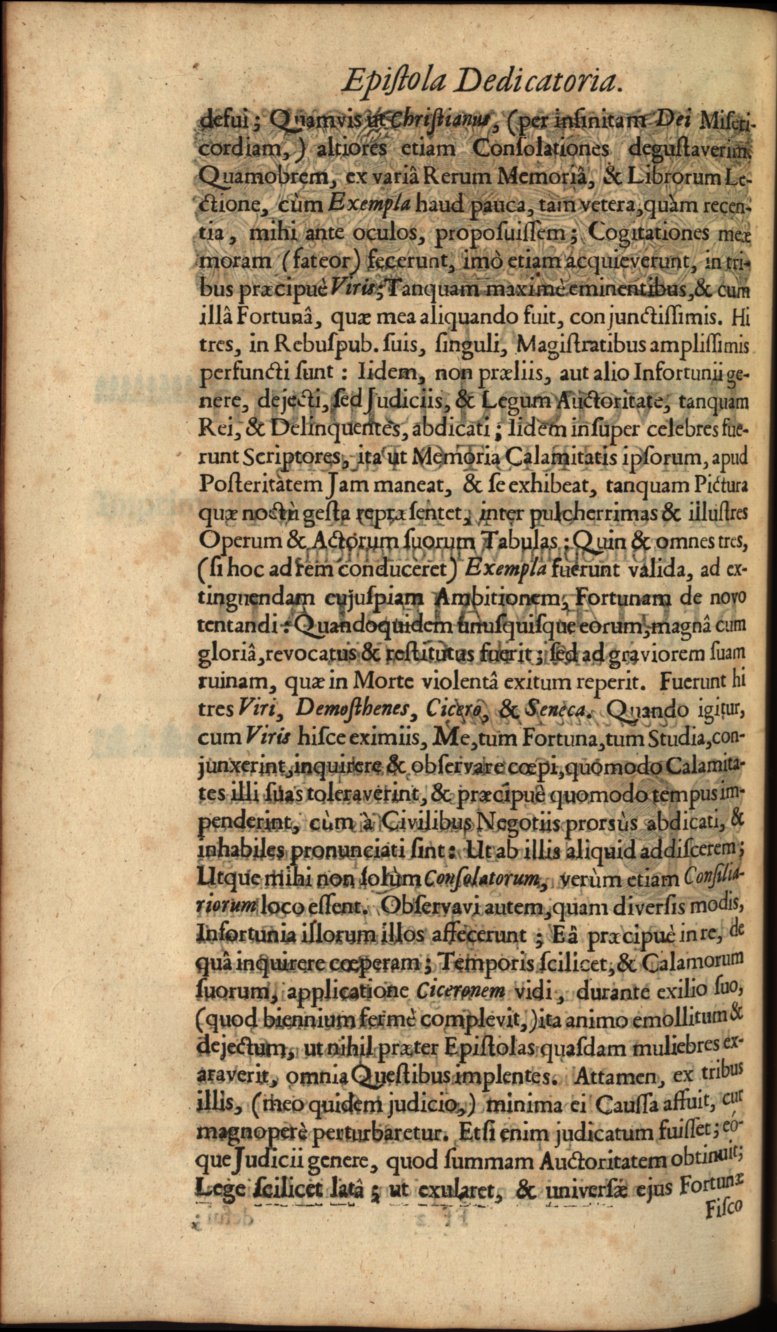 Epiſtola Dedicatoria.
defui; Quamvis ut Chriſtianus, (per infinitam Dei Miſeri-
cordiam,) altiores etiam Conſolationes deguſtaverim.
Quamobrem, ex variâ Rerum Memoriâ, & Librorum Le-
ctione, cùm Exempla haud pauca, tam vetera, quàm recen-
tia, mihi ante oculos, propoſuiſſem; Cogitationes meæ
moram (fateor) fecerunt, imò etiam acquieverunt, in tri-
bus præcipuè Viris; Tanquam maximè eminentibus, & cum
illâ Fortunâ, quæ mea aliquando fuit, conjunctiſſimis. Hi
tres, in Rebuſpub. ſuis, ſinguli, Magiſtratibus ampliſſimis
perfuncti ſunt: Iidem, non præliis, aut alio Infortunii ge-
nere, dejecti, ſed Judiciis, & Legum Auctoritate, tanquam
Rei, & Delinquentes, abdicati; Iidem inſuper celebres fue-
runt Scriptores, ita ut Memoria Calamitatis ipſorum, apud
Poſteritatem Jam maneat, & ſe exhibeat, tanquam Pictura
quæ noctù geſta repræſentet, inter pulcherrimas & illuſtres
Operum & Actorum ſuorum Tabulas: Quin & omnes tres,
(ſi hoc ad rem conduceret) Exempla fuerunt valida, ad ex-
tinguendam cujuſpiam Ambitionem, Fortunam de novo
tentandi: Quandoquidem unuſquiſque eorum, magnâ cum
gloriâ, revocatus & reſtitutus fuerit; ſed ad graviorem ſuam
ruinam, quæ in Morte violentâ exitum reperit. Fuerunt hi
tres Viri, Demoſthenes, Cicero, & Seneca. Quando igitur,
cum Viris hiſce eximiis, Me, tum Fortuna, tum Studia, con-
junxerint, inquirere & obſervare cœpi, quomodo Calamita-
tes illi ſuas toleraverint, & præcipuè quomodo tempus im-
penderint, cùm à Civilibus Negotiis prorsùs abdicati, &
inhabiles pronunciati ſint: Ut ab illis aliquid addiſcerem;
Utque mihi non ſolùm Conſolatorum, verùm etiam Conſilia-
riorum loco eſſent. Obſervavi autem, quam diverſis modis,
Infortunia iſlorum illos affecerunt; Eâ præcipuè in re, de
quâ inquirere cœperam; Temporis ſcilicet, & Calamorum
ſuorum, applicatione Ciceronem vidi, durante exilio ſuo,
(quod biennium fermè complevit,) ita animo emollitum &
dejectum, ut nihil præter Epiſtolas quaſdam muliebres ex-
araverit, omnia Queſtibus implentes. Attamen, ex tribus
illis, (meo quidem judicio,) minima ei Cauſſa affuit, cur
magnoperè perturbaretur. Etſi enim judicatum fuiſſet; eó-
que Judicii genere, quod ſummam Auctoritatem obtinuit;
Lege ſcilicet latâ; ut exularet, & univerſæ ejus Fortunæ
Fiſco